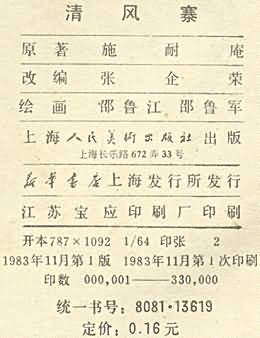 清风寨
原著施耐庵
改编张企荣
绘画 邵鲁江 邵鲁军
上海人民美术出版社出版
上海长乐路672弄33号
新华书店上海发行所发行
江苏宝应印刷厂印刷
开本787×1092 1/64 印张 2
1983年11月第1版 1983年11月第1次印刷
印数 000,001——330,000
统一书号：8081·13619
定价：0.16元